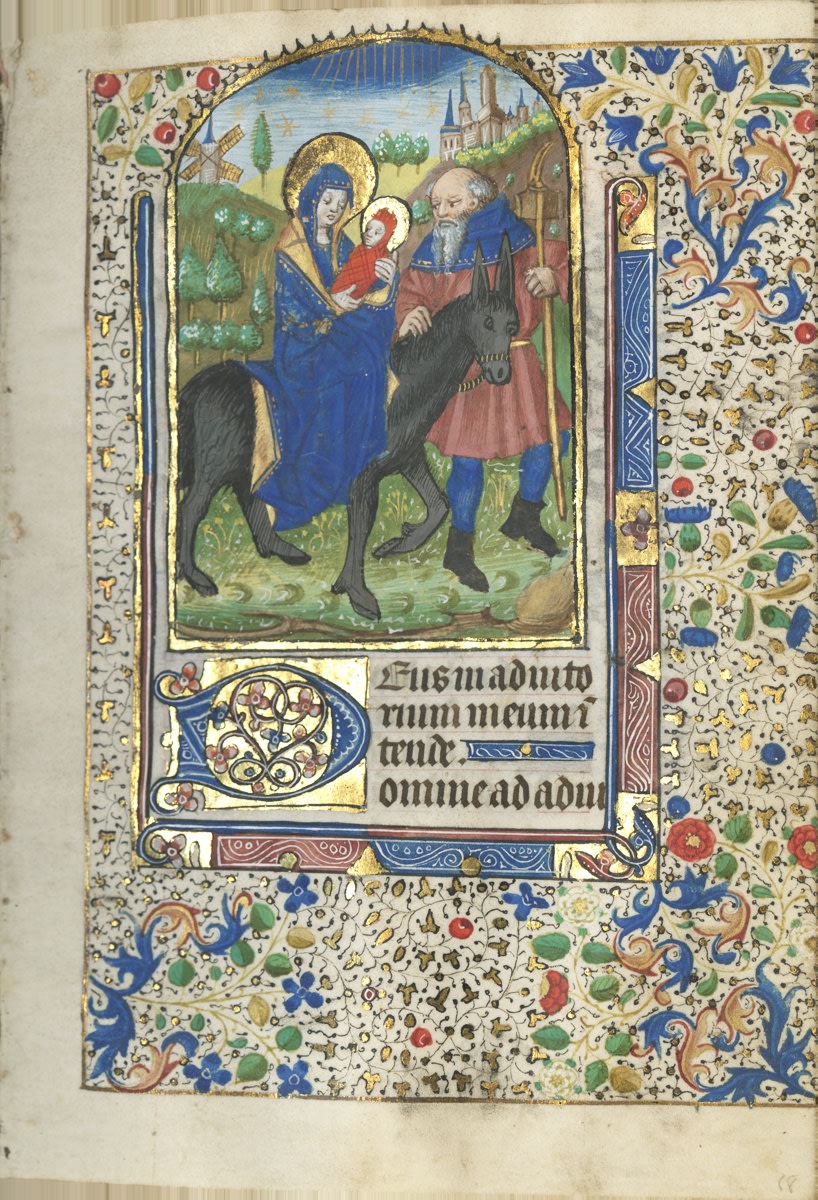 Deus in adiuto
rium meum ī
tende.
Domine ad adiu